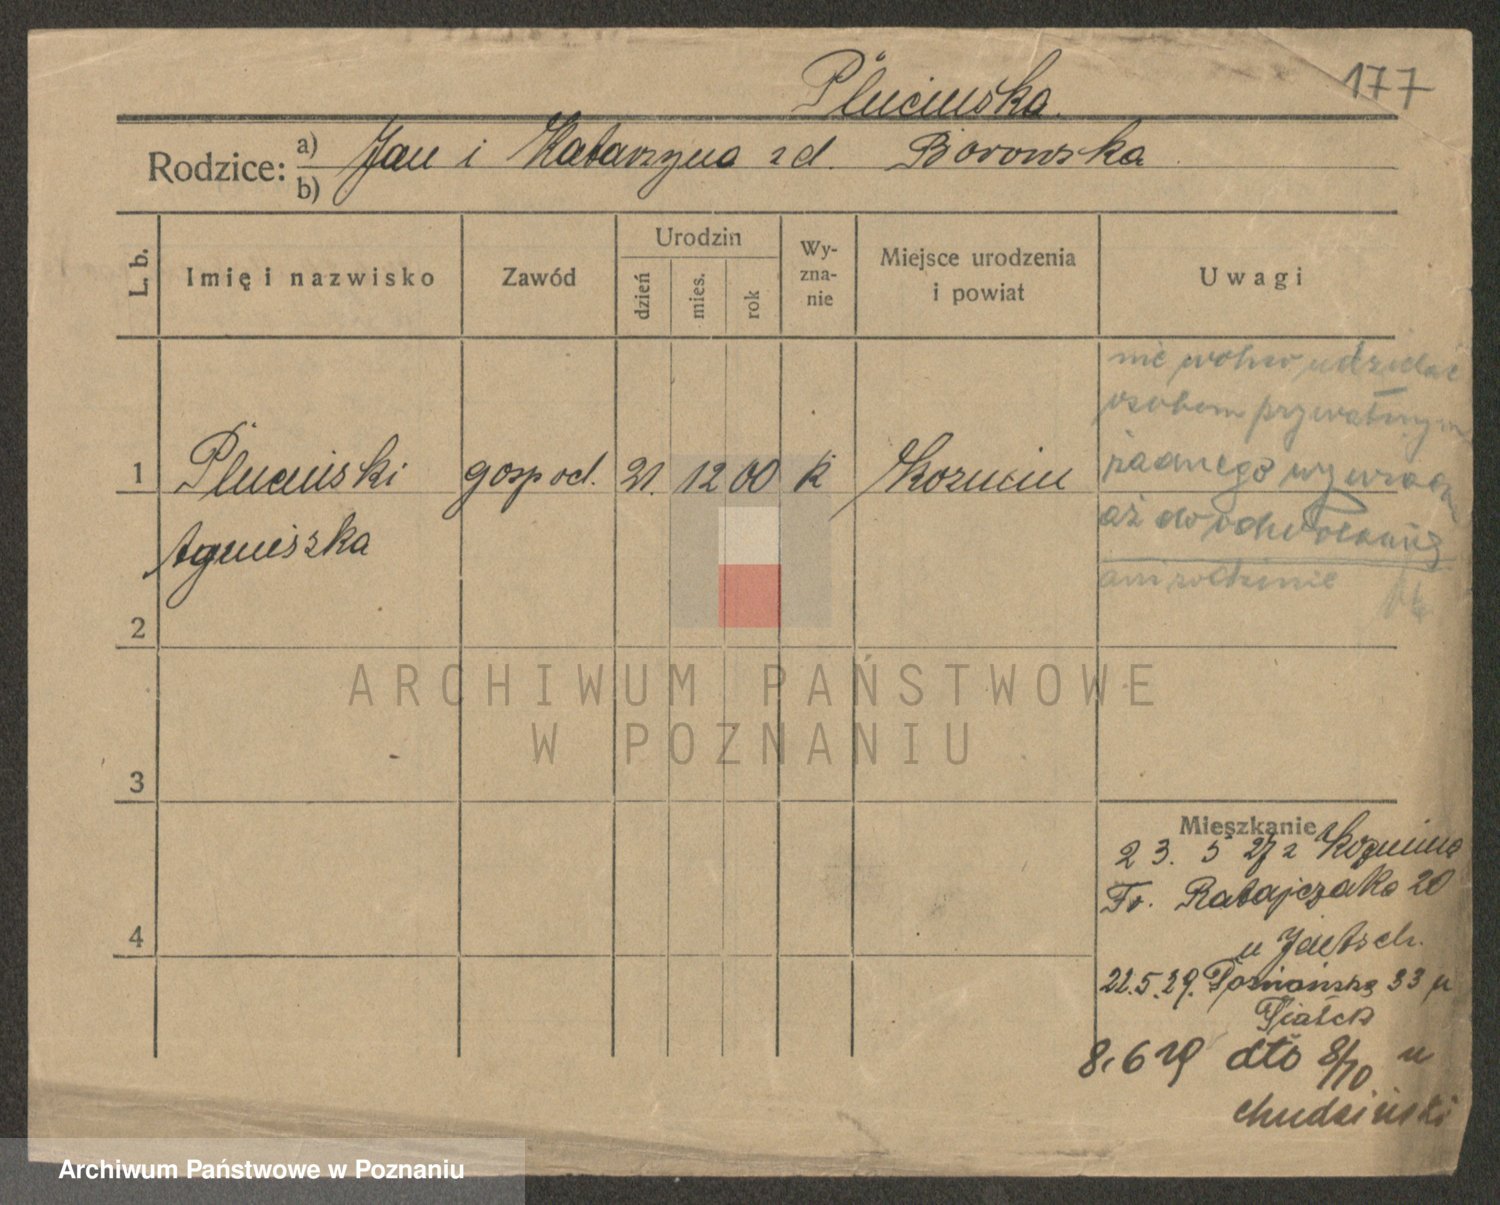 Plucińska.
177
Rodzice: a) Jan i Katarzyna z d. Borowska
b)
L. b.
Imię i nazwisko
Zawód
Urodzin
dzień
mies.
rok
Wy-
zna-
nie
Miejsce urodzenia
i powiat
Uwagi
nie wolno udzielać
osobom prywatnym
żadnego wywiadu
aż do odwołania
ani rodzinie
1
Pluciński
gospod.
21. 12 00
k
Kozmin
Agnieszka
2
ARCHIWUM PAŃSTWOWE
W POZNANIU
3
Mieszkanie
23. 5 27 z Kozmina
Fr. Ratajczaka 20
4
u Jaetsch.
22.5.29. Poznańska 33 u
Piątek
8.6 29 dto 8/10 u
Chudziński
Archiwum Państwowe w Poznaniu